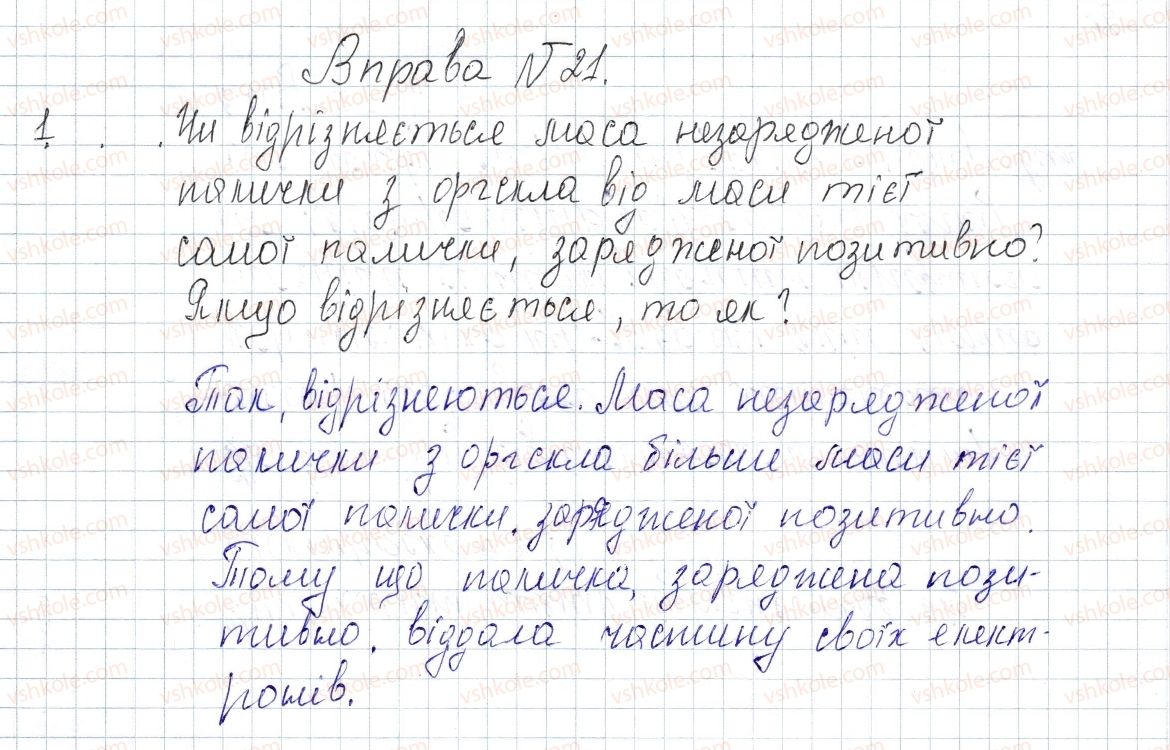 Вправа №21.
1. Чи відрізняється маса незарядженої
палички з оргскла від маси тієї
самої палички, зарядженої позитивно?
Якщо відрізняється, то як?
Так, відрізнеються. Маса незарядженої
палички з оргскла більши маси тієї
самої палички, зарядженої позитивно.
Тому що паличка, заряджена пози-
тивно, віддала частину своїх елект-
ронів.